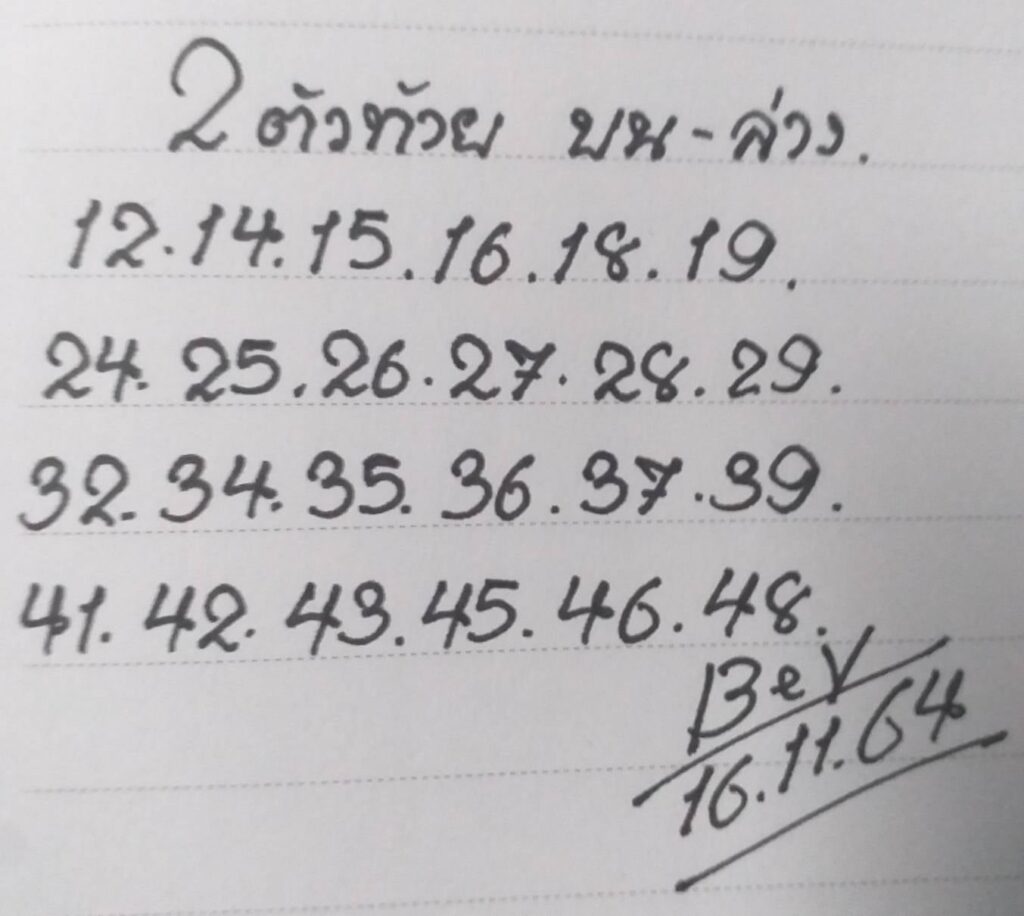 2 ตัวท้าย บน-ล่าง.
12.14.15.16.18.19.
24.25.26.27.28.29.
32.34.35.36.37.39.
41.42.43.45.46.48.
BeV
16.11.64